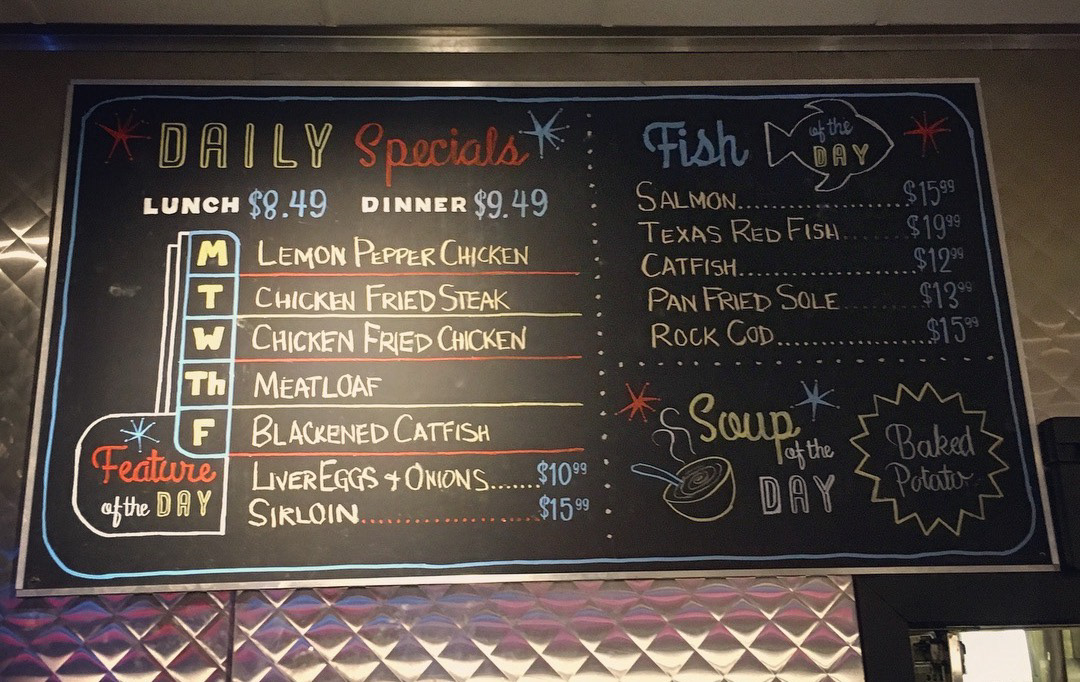 DAILY Specials
LUNCH $8.49 DINNER $9.49
M LEMON PEPPER CHICKEN
T CHICKEN FRIED STEAK
W CHICKEN FRIED CHICKEN
Th MEATLOAF
F BLACKENED CATFISH
Feature
of the DAY
LIVER EGGS & ONIONS.......$10.99
SIRLOIN.......................$15.99
Fish of the DAY
SALMON.....................$15.99
TEXAS RED FISH.........$19.99
CATFISH......................$12.99
PAN FRIED SOLE..........$13.99
ROCK COD...................$15.99
Soup
of the
DAY
Baked
Potato